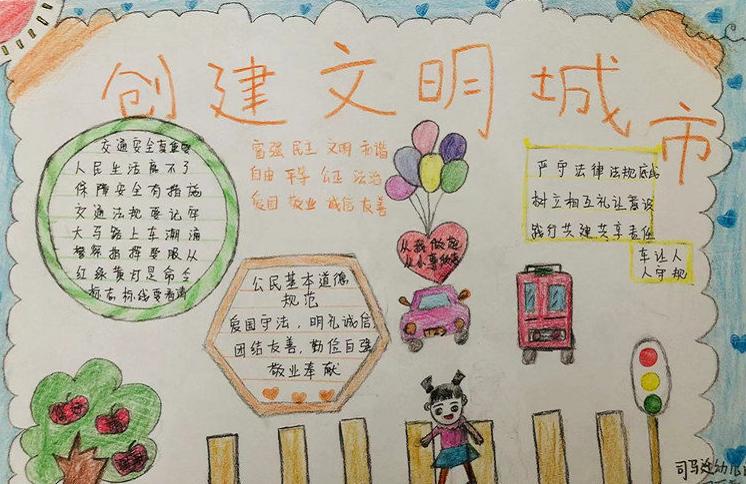 创建文明城市
交通安全真重要
人民生活离不了
保障安全有措施
交通法规要记牢
大马路上车潮涌
警察指挥要服从
红绿黄灯是命令
标志标线要看清
富强 民主 文明 和谐
自由 平等 公正 法治
爱国 敬业 诚信 友善
从我做起
从小事做起
公民基本道德
规范
爱国守法，明礼诚信
团结友善，勤俭自强
敬业奉献
严守法律法规底线
树立相互礼让意识
践行共建共享责任
车让人
人守规